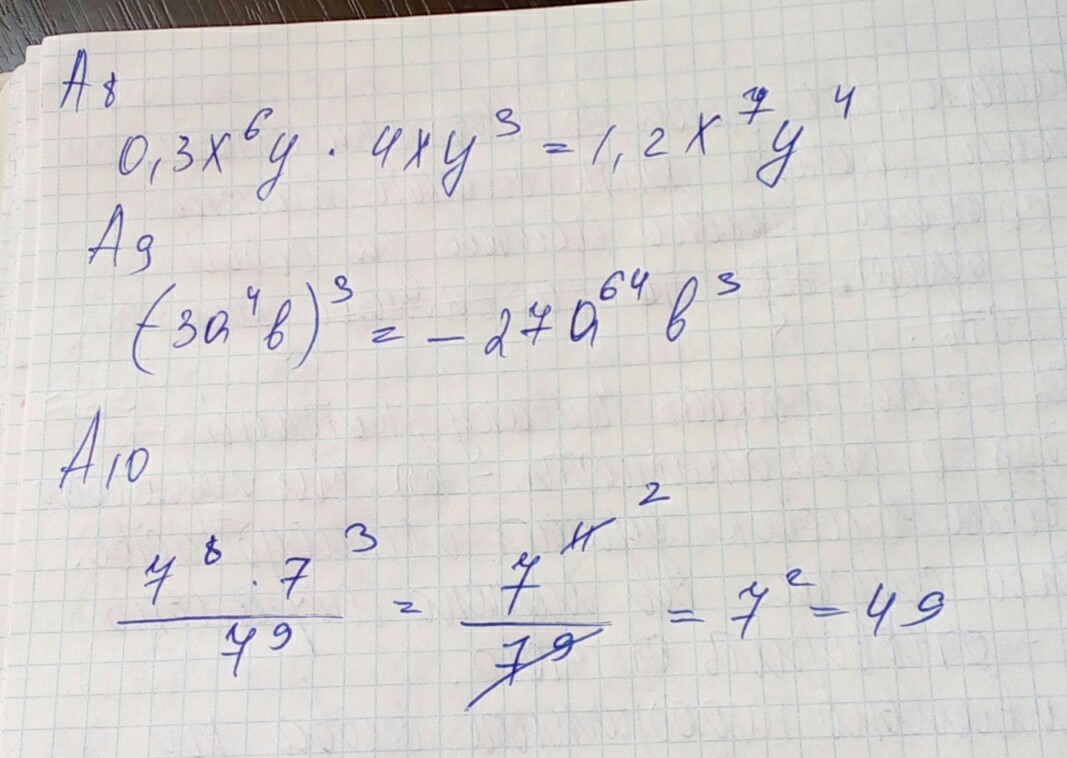 А8
0,3x⁶y · 4xy³ = 1,2x⁷y⁴
А9
(-3a⁴b)³ = -27a⁶⁴b³
А10
7⁸ · 7³ / 7⁹ = 7¹¹ ² / 7⁹ = 7² = 49